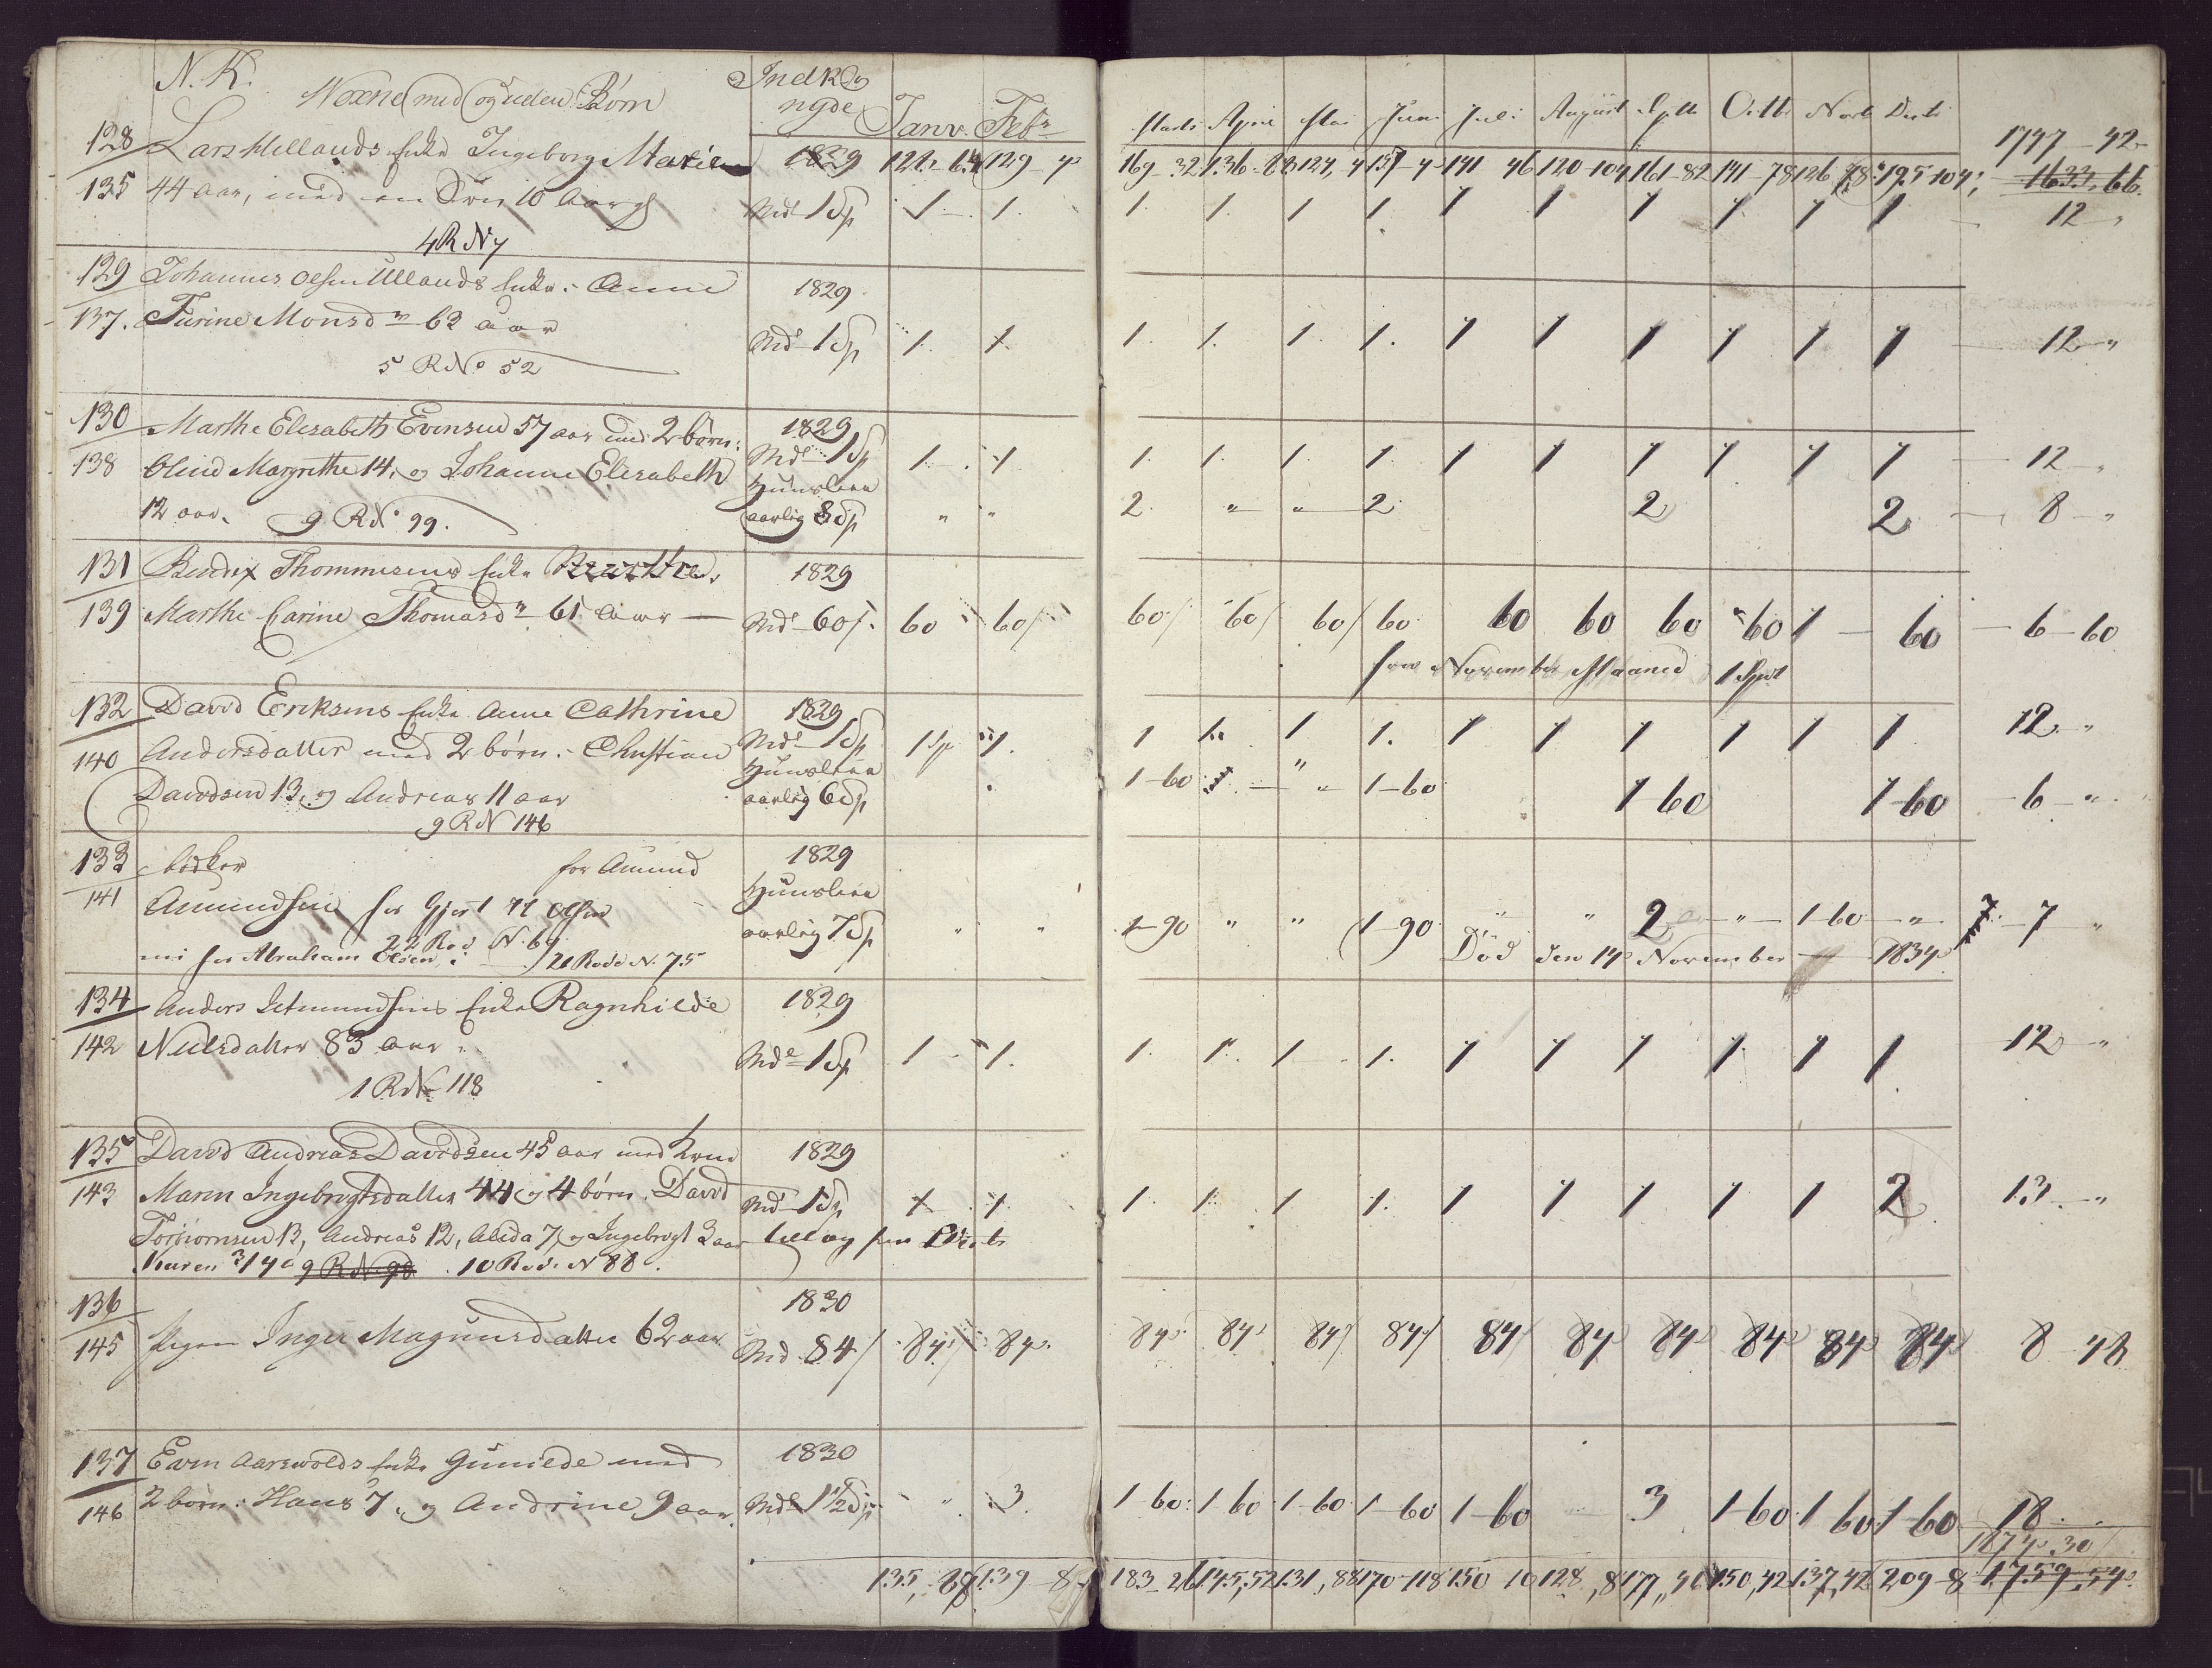 N. K. Voxne med og uden Børn Indk og
nyde Janv. Febr Marts April Mai Juni Juli August Septb Octb Novb Decb
1747 - 42
128 Lars Mellands Enke Ingeborg Marie 1829 129 - 4 169 - 32 136 124, 4 157 - 4 141 46 120 - 104 161 - 82 141 - 78 126 195 - 104 1633, 66
135 44 aar, med en Søn 10 Aar Md 1 Sp 1 1. 1. 1. 1 1. 1 1 1 1 1 1 12 "
4 R N 7
129 Johannes Olsen Ullands Enke: Anne 1829
137. Turine Monsd 62 aar Md 1 Sp 1. 1. 1. 1. 1. 1. 1 1 1 1 1 1 12 "
5 R No 52
130 Marthe Elisabeth Evensen 57 aar med 2 børn: 1829
Md 1 Sp 1 1 1. 1. 1. 1. 1 1 1 1 1 1 12 "
138 Oline Margrethe 14, og Johanne Elisabeth Huusleie
12 aar. 9 R No 99. aarlig 8 Sp " " 2. " " 2 2 2 8 "
131 Bendix Thommesens Enke 1829
139 Marthe Carine Thomasd 61 Aar Md 60 60 60 60 60 60 60 60 60 60 60 1 60 6 - 60
fra November Maaned 1 Spd
132 David Eriksens Enke Anne Cathrine 1829
140 Andersdatter med 2 børn: Christian Md 1 Sp 1 Sp 1. 1 1 1 1. 1 1 1 1 1 1 12 "
Huusleie
Davidsen 13, og Andreas 11 aar aarlig 6 Sp 1 - 60 " " 1 - 60 1 60 1 - 60 6 - "
9 R N 146
133 for Amund 1829
141 Amundsen for Gjert Olsen Huusleie
22 Rod N. 69 aarlig 7 Sp " " 1 - 90 " " 1 - 90 " " 2 " 1 - 60 " 7 "
for Abraham Olsen, 21 Rode N. 75 Død den 14 November 1834
134 Anders Enke Ragnhilde 1829
142 Nielsdatter 83 aar Md 1 Sp 1 1. 1. 1. 1 1. 1 1 1 1 1 1 12 "
1 R No 118
135 David Andreas Davidsen 45 aar med Kone 1829
143 Maren Ingebrogtsdatter 44 og 4 børn. David Md 1 Sp 1 1. 1. 1. 1 1. 1 1 1 1 1 2 13 "
Torbiornsen 13, Andreas 12, Alida 7, og Ingebrogt 3 aar
9 R N 98 10 Rode N 88.
136 1830
145 Pigen Inger Magnusdatter 62 aar Md 84 84 84 84 84 84 84 84 84 84 84 84 84 8 48
137 Even Aarsvolds Enke Gunilde med 1830
146 2 børn: Hans 7, og Andrine 9 aar. Md 1 1/2 Sp " 3. 1 - 60 1 60 1 - 60 1 - 60 1 - 60 3 1 - 60 1 60 1 - 60 18
1874, 30
135, 139 - 8 183 - 26 145, 52 131, 88 170 - 118 150 10 128, 8 177, 150, 42 137, 42 209 - 8 1759, 54